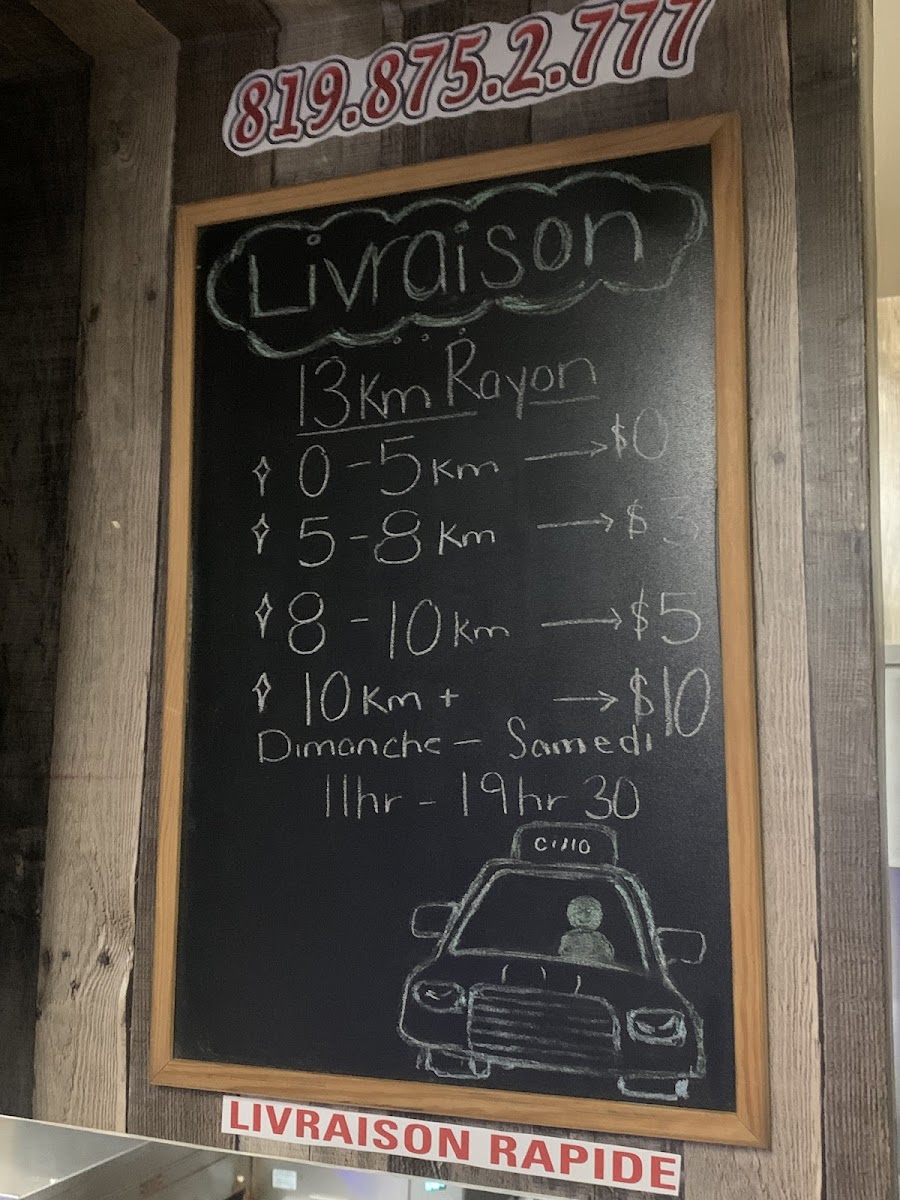 819.875.2.777
Livraison
13Km Rayon
0-5 Km → $0
5-8 Km → $3
8-10 Km → $5
10 Km + → $10
Dimanche - Samedi
11hr - 19hr 30
LIVRAISON RAPIDE